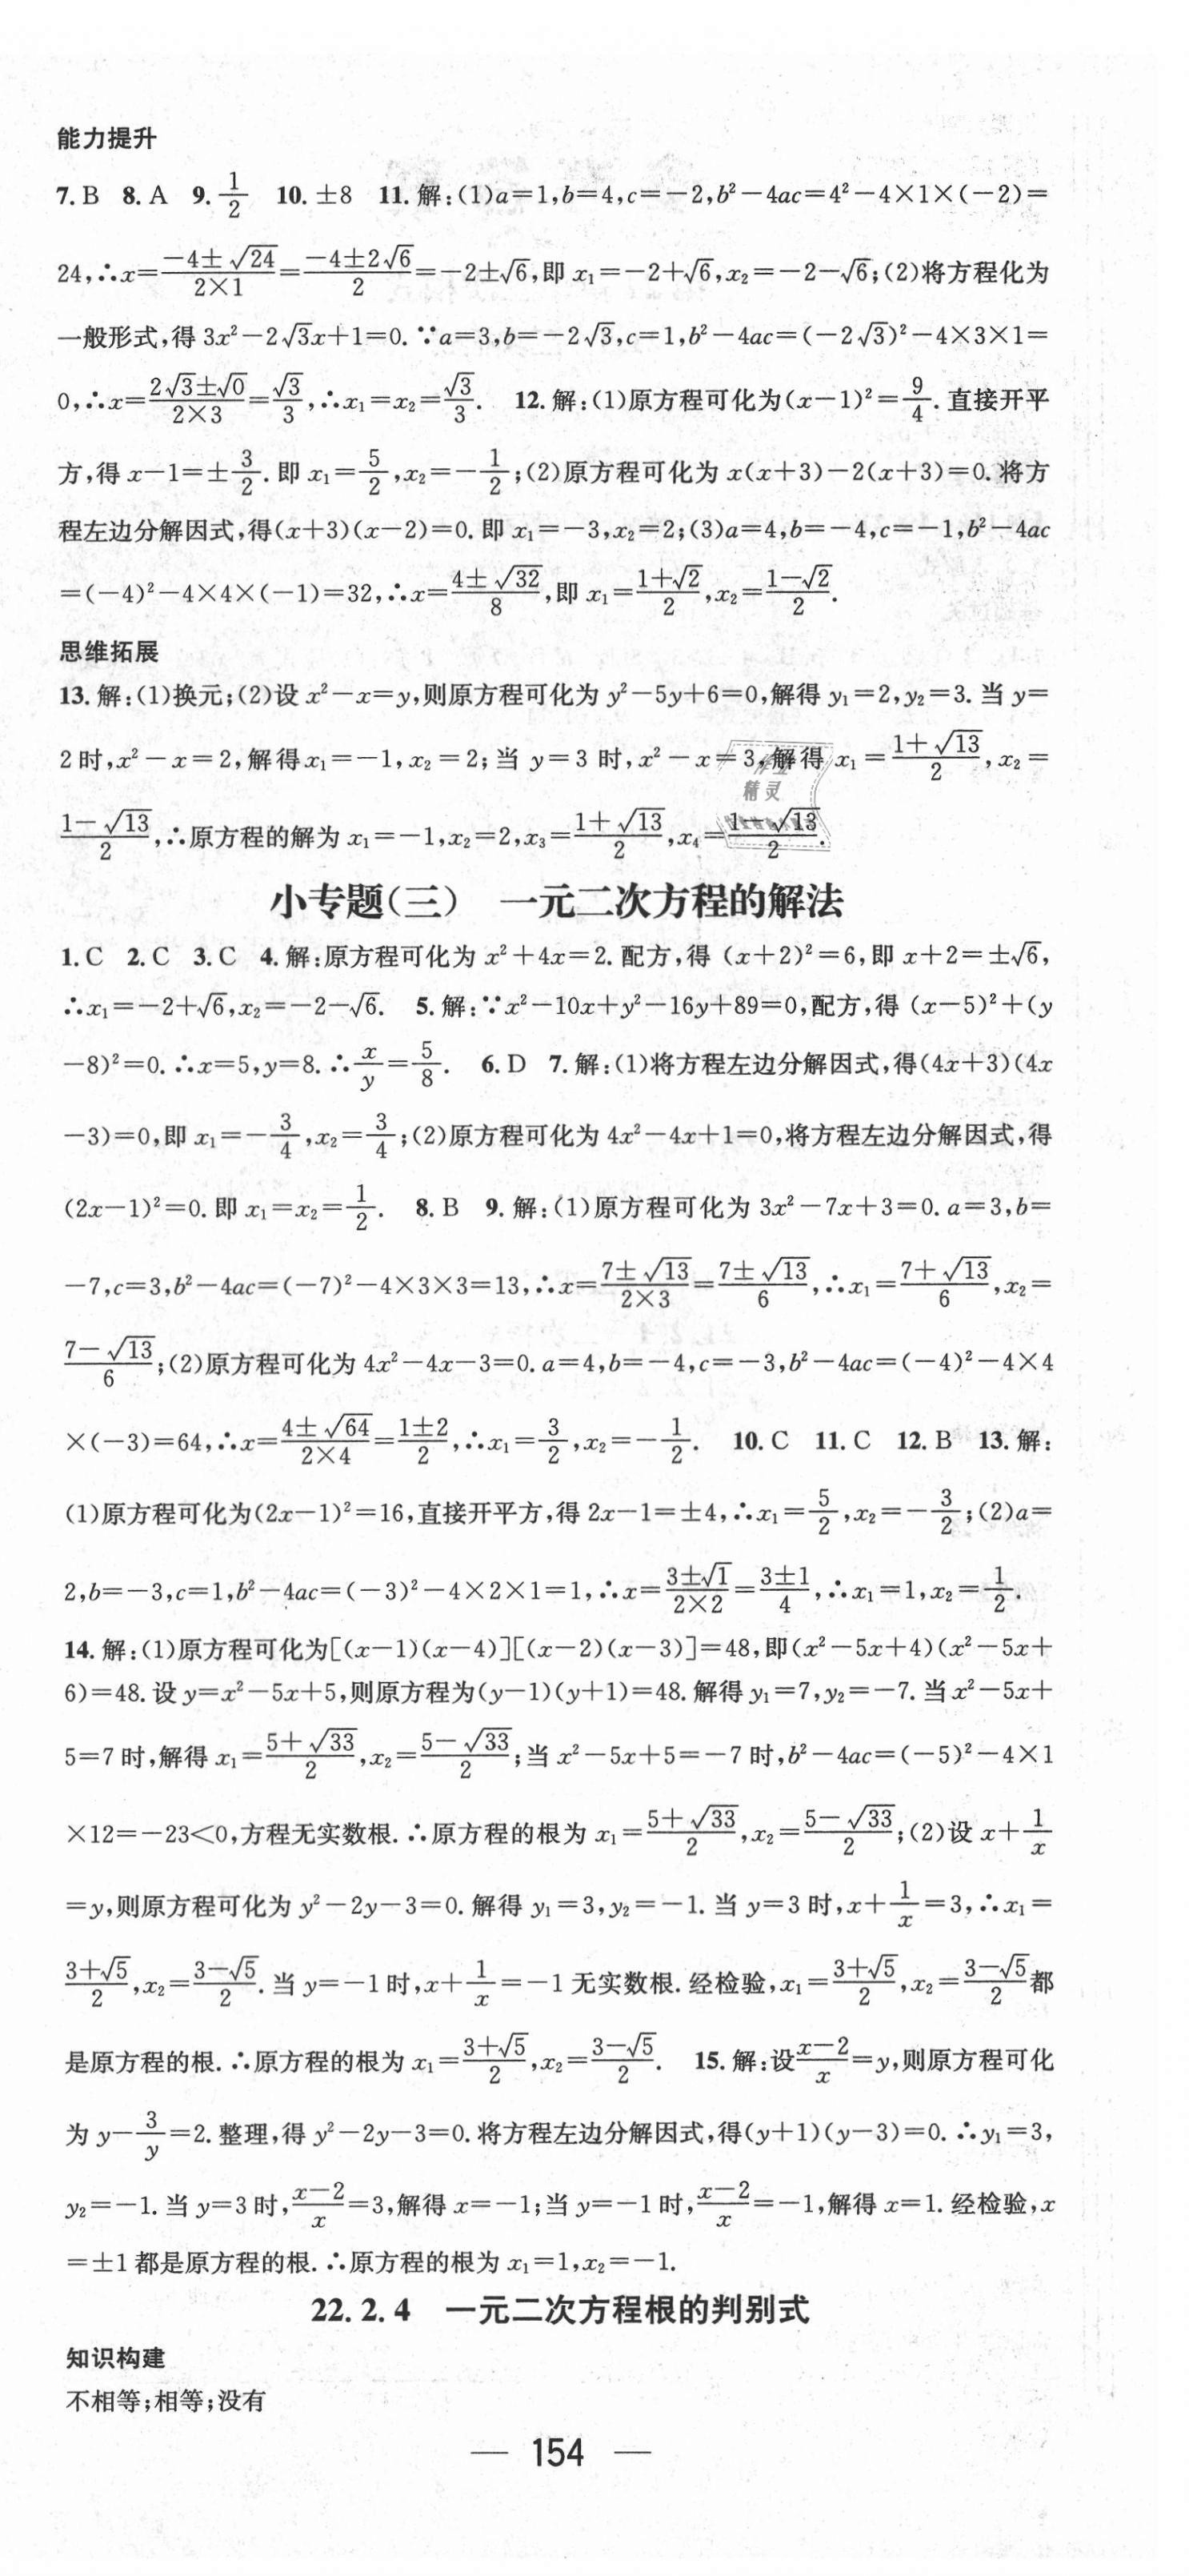 能力提升
7. B 8. A 9. 1/2 10. ±8 11. 解:(1)a=1,b=4,c=-2,b²-4ac=4²-4×1×(-2)=
24,∴x=(-4±√24)/(2×1)=(-4±2√6)/2=-2±√6,即 x₁=-2+√6,x₂=-2-√6;(2)将方程化为
一般形式,得 3x²-2√3x+1=0. ∵a=3,b=-2√3,c=1,b²-4ac=(-2√3)²-4×3×1=
0,∴x=(2√3±√0)/(2×3)=√3/3,∴x₁=x₂=√3/3. 12. 解:(1)原方程可化为(x-1)²=9/4. 直接开平
方,得 x-1=±3/2. 即 x₁=5/2,x₂=-1/2;(2)原方程可化为 x(x+3)-2(x+3)=0. 将方
程左边分解因式,得(x+3)(x-2)=0. 即 x₁=-3,x₂=2;(3)a=4,b=-4,c=-1,b²-4ac
=(-4)²-4×4×(-1)=32,∴x=(4±√32)/8,即 x₁=(1+√2)/2,x₂=(1-√2)/2.
思维拓展
13. 解:(1)换元;(2)设 x²-x=y,则原方程可化为 y²-5y+6=0,解得 y₁=2,y₂=3. 当 y=
2 时,x²-x=2,解得 x₁=-1,x₂=2;当 y=3 时,x²-x=3,解得 x₁=(1+√13)/2,x₂=
(1-√13)/2,∴原方程的解为 x₁=-1,x₂=2,x₃=(1+√13)/2,x₄=(1-√13)/2.
作业
精灵
小专题(三) 一元二次方程的解法
1. C 2. C 3. C 4. 解:原方程可化为 x²+4x=2. 配方,得 (x+2)²=6,即 x+2=±√6,
∴x₁=-2+√6,x₂=-2-√6. 5. 解:∵x²-10x+y²-16y+89=0,配方,得 (x-5)²+(y
-8)²=0. ∴x=5,y=8. ∴x/y=5/8. 6. D 7. 解:(1)将方程左边分解因式,得(4x+3)(4x
-3)=0,即 x₁=-3/4,x₂=3/4;(2)原方程可化为 4x²-4x+1=0,将方程左边分解因式,得
(2x-1)²=0. 即 x₁=x₂=1/2. 8. B 9. 解:(1)原方程可化为 3x²-7x+3=0. a=3,b=
-7,c=3,b²-4ac=(-7)²-4×3×3=13,∴x=(7±√13)/(2×3)=(7±√13)/6,∴x₁=(7+√13)/6,x₂=
(7-√13)/6;(2)原方程可化为 4x²-4x-3=0. a=4,b=-4,c=-3,b²-4ac=(-4)²-4×4
×(-3)=64,∴x=(4±√64)/(2×4)=(1±2)/2,∴x₁=3/2,x₂=-1/2. 10. C 11. C 12. B 13. 解:
(1)原方程可化为(2x-1)²=16,直接开平方,得 2x-1=±4,∴x₁=5/2,x₂=-3/2;(2)a=
2,b=-3,c=1,b²-4ac=(-3)²-4×2×1=1,∴x=(3±√1)/(2×2)=(3±1)/4,∴x₁=1,x₂=1/2.
14. 解:(1)原方程可化为[(x-1)(x-4)][(x-2)(x-3)]=48,即(x²-5x+4)(x²-5x+
6)=48. 设 y=x²-5x+5,则原方程为(y-1)(y+1)=48. 解得 y₁=7,y₂=-7. 当 x²-5x+
5=7 时,解得 x₁=(5+√33)/2,x₂=(5-√33)/2;当 x²-5x+5=-7 时,b²-4ac=(-5)²-4×1
×12=-23<0,方程无实数根. ∴原方程的根为 x₁=(5+√33)/2,x₂=(5-√33)/2;(2)设 x+1/x
=y,则原方程可化为 y²-2y-3=0. 解得 y₁=3,y₂=-1. 当 y=3 时,x+1/x=3,∴x₁=
(3+√5)/2,x₂=(3-√5)/2. 当 y=-1 时,x+1/x=-1 无实数根. 经检验,x₁=(3+√5)/2,x₂=(3-√5)/2都
是原方程的根. ∴原方程的根为 x₁=(3+√5)/2,x₂=(3-√5)/2. 15. 解:设(x-2)/x=y,则原方程可化
为 y-3/y=2. 整理,得 y²-2y-3=0. 将方程左边分解因式,得(y+1)(y-3)=0. ∴y₁=3,
y₂=-1. 当 y=3 时,(x-2)/x=3,解得 x=-1;当 y=-1 时,(x-2)/x=-1,解得 x=1. 经检验,x
=±1 都是原方程的根. ∴原方程的根为 x₁=1,x₂=-1.
22.2.4 一元二次方程根的判别式
知识构建
不相等;相等;没有
— 154 —